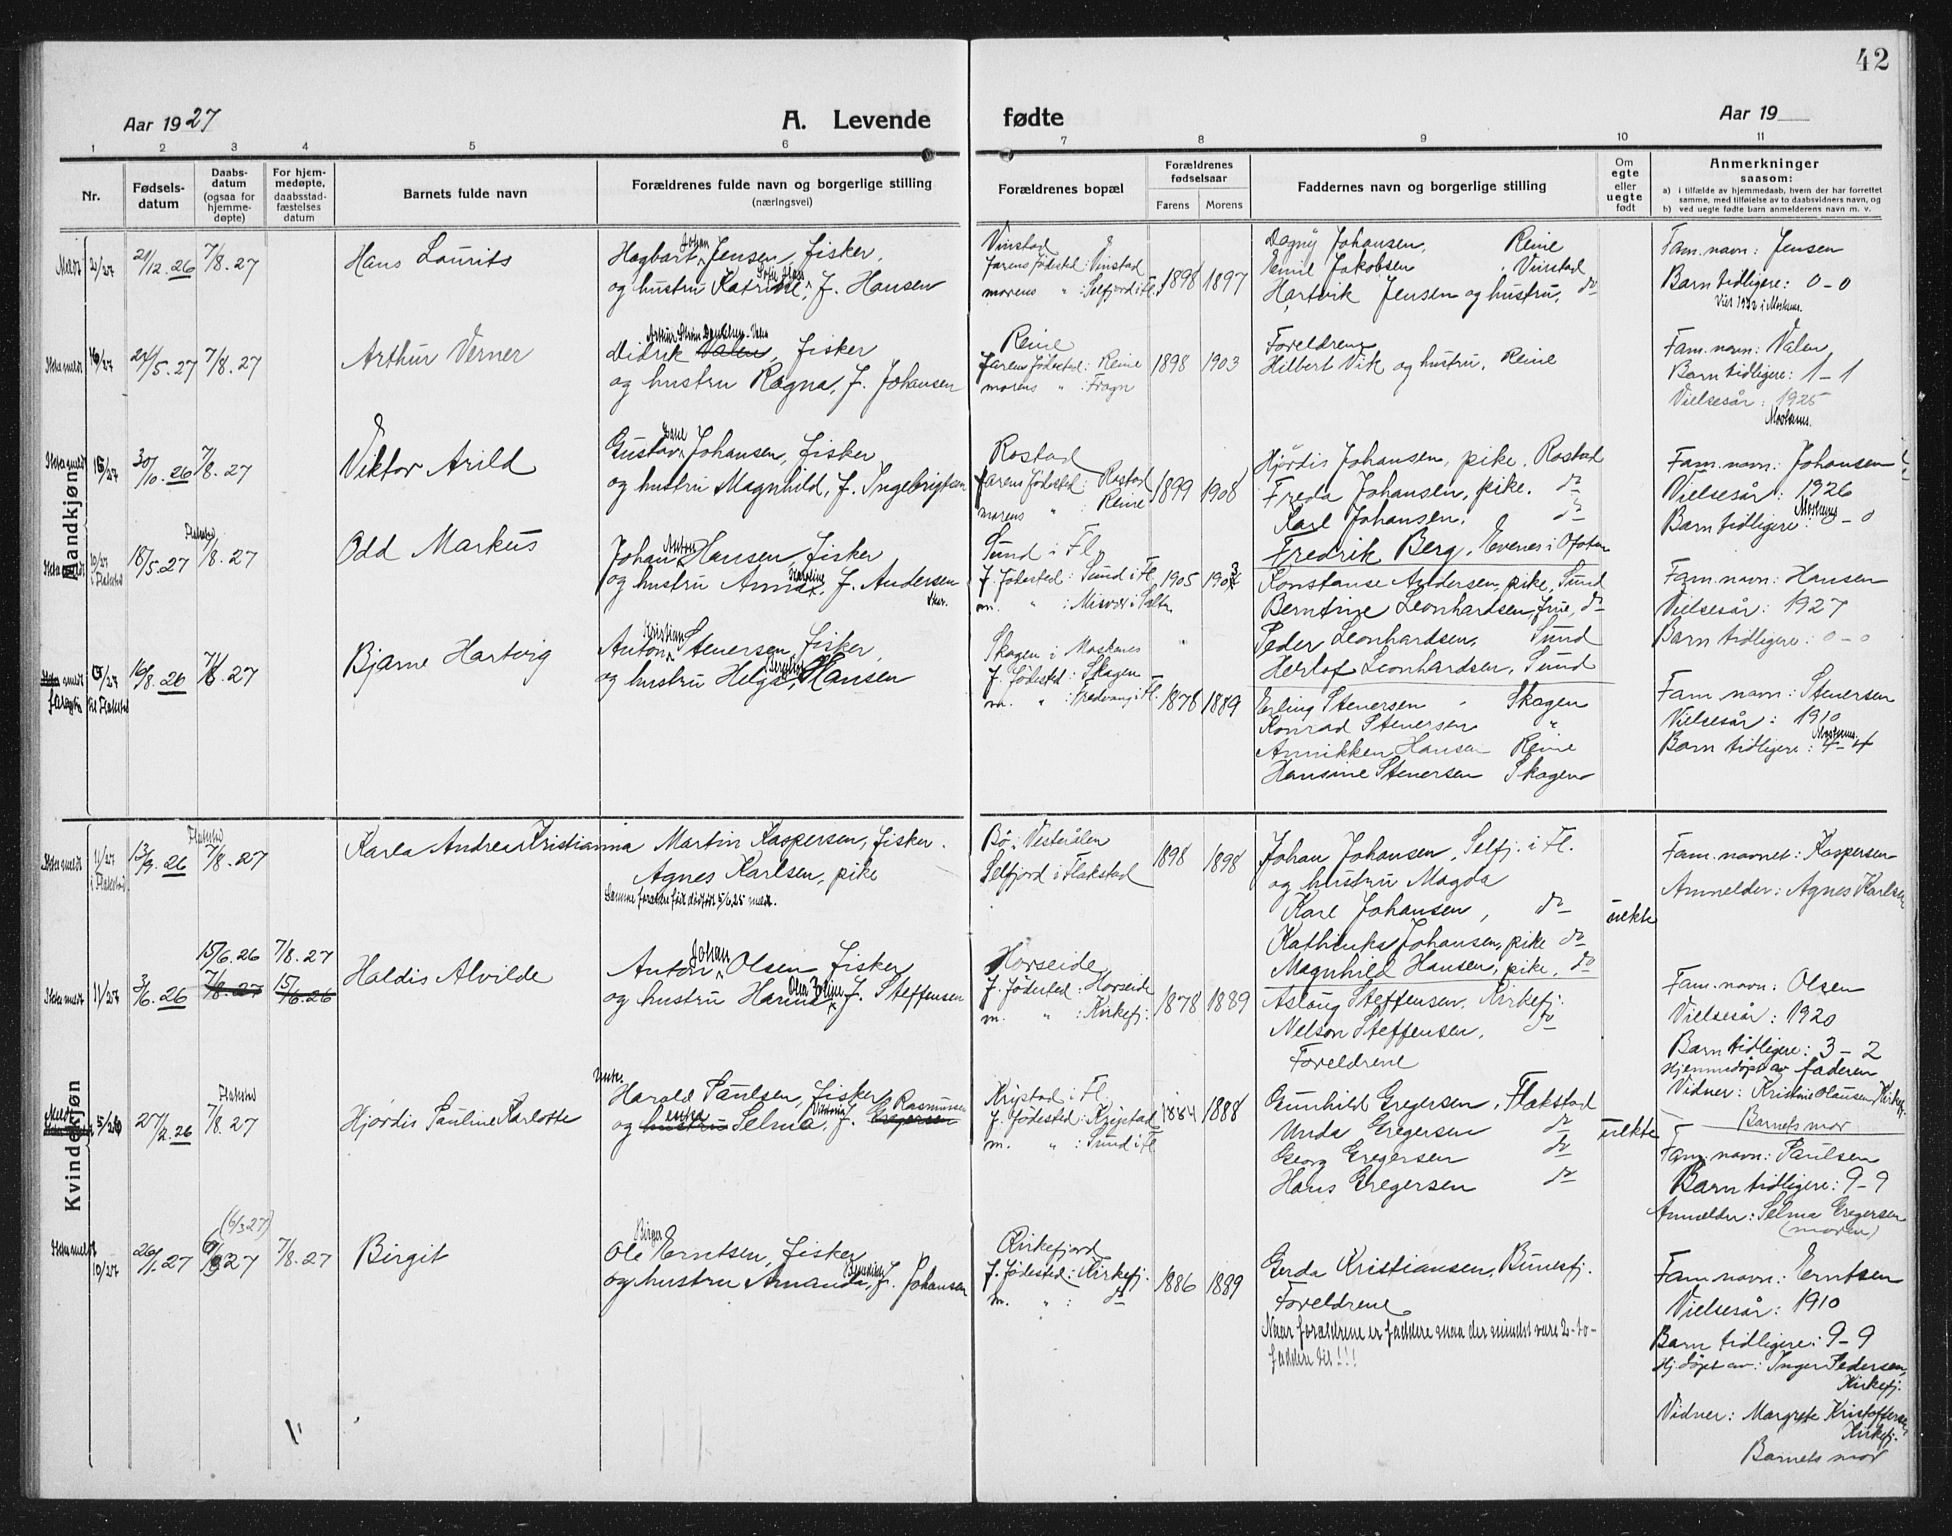 42
Aar 1927
A. Levende
fødte
Aar 19
1 2 3 4 5 6 7 8 9 10 11
Nr.
Fødsels-
datum
Daabs-
datum
(ogsaa for
hjemme-
døpte)
For hjem-
medøpte,
daabsstad-
fæstelses
datum
Barnets fulde navn
Forældrenes fulde navn og borgerlige stilling
(næringsvei)
Forældrenes bopæl
Forældrenes
fødselsaar
Farens Morens
Faddernes navn og borgerlige stilling
Om
egte
eller
uegte
født
Anmerkninger
saasom:
a) i tilfælde av hjemmedaab, hvem der har forrettet
samme, med tilføielse av to daabsvidners navn, og
b) ved uegte fødte barn anmelderens navn m. v.
Mandkjøn
21/12.26 7/8.27 Hans Lourits
Johan
Hagbart Jensen, fisker,
og hustru Katrine, f. Hansen
Vinstad
farens fødested: Vinstad
morens " : Selfjord i Fl.
1898 1897
Dagny Johansen, Reine
Emil Jakobsen, Vinstad
Hartvik Jensen og hustru, do
Fam. navn: Jensen
Barn tidligere: 0-0
24/5.27 7/8.27 Arthur Verner
Didrik Valen, fisker
og hustru Ragna, f. Johansen
Reine
farens fødested: Reine
morens " :
1898 1903
Foreldrene
Hilbert Vik og hustru, Reine
Fam. navn: Valen
Barn tidligere: 1-1
Vielsesår: 1925
Moskenes.
30/10.26 7/8.27 Viktor Arild
Gustav Johansen, fisker
og hustru Magnhild, f. Ingebrigtsen
Rostad
farens fødested: Rostad
morens " : Reine
1899 1908
Hjørdis Johansen, pike. Rostad
Freda Johansen, pike. do
Karl Johansen, do
Fredrik Berg, Evenes i Ofoten
Fam. navn: Johansen
Vielsesår: 1926
Moskenes
Barn tidligere: 0-0
Flakstad
18/5.27 7/8.27 Odd Markus
Anton
Johan Hansen, fisker
og hustru Anna, f. Andersen
Sund i Fl.
f. fødested: Sund i Fl.
m. " : Misvær i Salten
1905
Konstanse Andersen, pike, Sund
Berntine Leonhardsen, frue, do
Peder Leonhardsen, Sund
Herlof Leonhardsen, Sund
Fam. navn: Hansen
Vielsesår: 1927
Barn tidligere: 0-0
19/8.26 Bjarne Hartvig
Kristian
Anton Stenersen, fisker,
og hustru Helga, Hansen
Skagen i Moskenes
f. fødested: Skagen
m. " : Fredvang i Fl.
1878 1889
Erling Stenersen Skagen
Konrad Stenersen "
Annikken Hansen Reine
Hansine Stenersen Skagen
Fam. navn: Stenersen
Vielsesår: 1910
Moskenes.
Barn tidligere: 4-4
Kvindekjøn
Flakstad
11/27 i Flakstad 13/9.26 7/8.27 Karla Andrea Kristianna
Martin Kaspersen, fisker.
Agnes Karlsen, pike
Bø i Vesterålen
Selfjord i Flakstad
1898 1898
Johan Johansen, Selfj. i Fl.
og hustru Magda
Karl Johansen, do
Kathinka Johansen, pike do
Magnhild Hansen, pike, do
uekte
Fam. navnet: Kaspersen
Anmelder: Agnes Karlsen
15/6.26 7/8.27
11/27 3/6.26 7/8.27 15/6.26 Haldis Alvilde
Johan
Anton Olsen, fisker
og hustru Hanna, f. Steffensen
Horseide
f. fødested: Horseide
m. " : Kirkefj.
1878 1889
Aslaug Steffensen, Kirkefj.
Nelson Steffensen, do
Foreldrene
Fam. navn: Olsen
Vielsesår: 1920
Barn tidligere: 3-2
Hjemmedøpt av faderen
Vidner: Kristine Olausen Kirkefj.
Barnets mor
Flakstad
27/2.26 7/8.27 Hjørdis Pauline Karlotte
Harald Paulsen, fisker
enke Rasmussen
og hustru Selma, f. Gregersen
Krystad i Fl.
f. fødested: Krystad
m. " : Sund i Fl
1884 1888
Gunhild Gregersen, Flakstad
Unda Gregersen do
Georg Gregersen do
Hans Gregersen do
uekte
Fam. navn: Paulsen
Barn tidligere: 9-9
Anmelder: Selma Gregersen
(moren)
(6/3 27)
10/27 26/1.27 7/8.27 Birgit
Birger
Ole Erntsen, fisker
og hustru Amanda, f. Johansen
Kirkefjord
f. fødested: Kirkefj.
m. " : do
1886 1889
Gerda Kristiansen, Bunesfj.
Foreldrene
Naar forældrene er faddere maa der mindst være 2-to-
faddere til!!!
Fam. navn: Erntsen
Vielsesår: 1910
Barn tidligere: 9-9
Hj. døpt av: Inger Pedersen,
Kirkefj.
Vidner: Margrete Kristoffersen,
Kirkefj.
Barnets mor